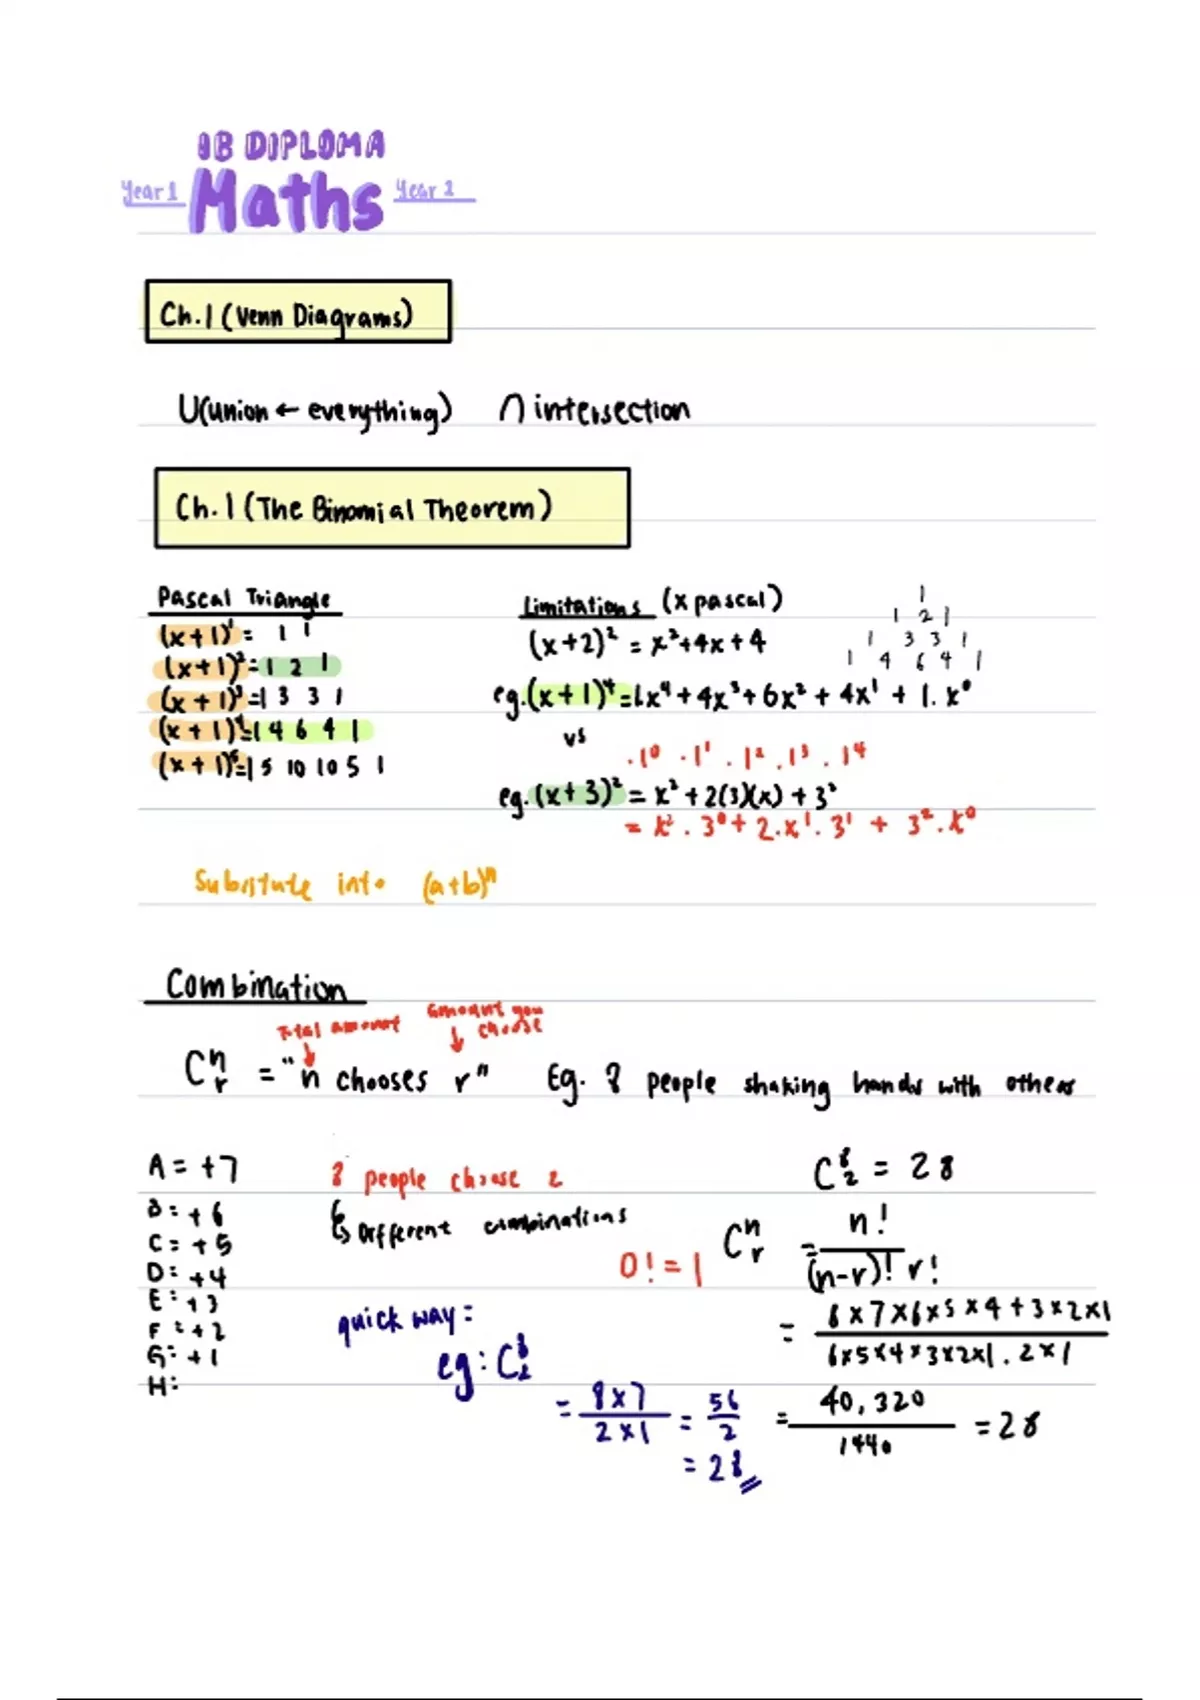 IB DIPLOMA
Year 1 Maths Year 2
Ch.1 (Venn Diagrams)
U(union ← everything) ∩ intersection
Ch.1 (The Binomial Theorem)
Pascal Triangle
(x+1)¹ = 1 1
(x+1)² = 1 2 1
(x+1)³ = 1 3 3 1
(x+1)⁴ = 1 4 6 4 1
(x+1)⁵ = 1 5 10 10 5 1
Limitations (x pascal)
(x+2)² = x²+4x+4
1
1 2 1
1 3 3 1
1 4 6 4 1
eg. (x+1)⁴ = 1x⁴ + 4x³ + 6x² + 4x¹ + 1.x⁰
vs
.1⁰ .1¹ .1² .1³ .1⁴
eg. (x+3)² = x² + 2(3)(x) + 3²
= x² . 3⁰ + 2.x¹.3¹ + 3².x⁰
Substitute into (a+b)ⁿ
Combination
Total amount
amount you choose
Cⁿᵣ = "n chooses r" Eg. 8 people shaking hands with others
A = +7
B: +6
C = +5
D: +4
E: +3
F: +2
G: +1
H:
8 people choose 2
↳ Different combinations
0! = 1
C⁸₂ = 28
Cⁿᵣ = n!
(n-r)! r!
= 8×7×6×5×4+3×2×1
6×5×4×3×2×1 . 2×1
= 40,320
1440
= 28
quick way:
eg: C⁸₂
= 8×7
2×1
= 56
2
= 28